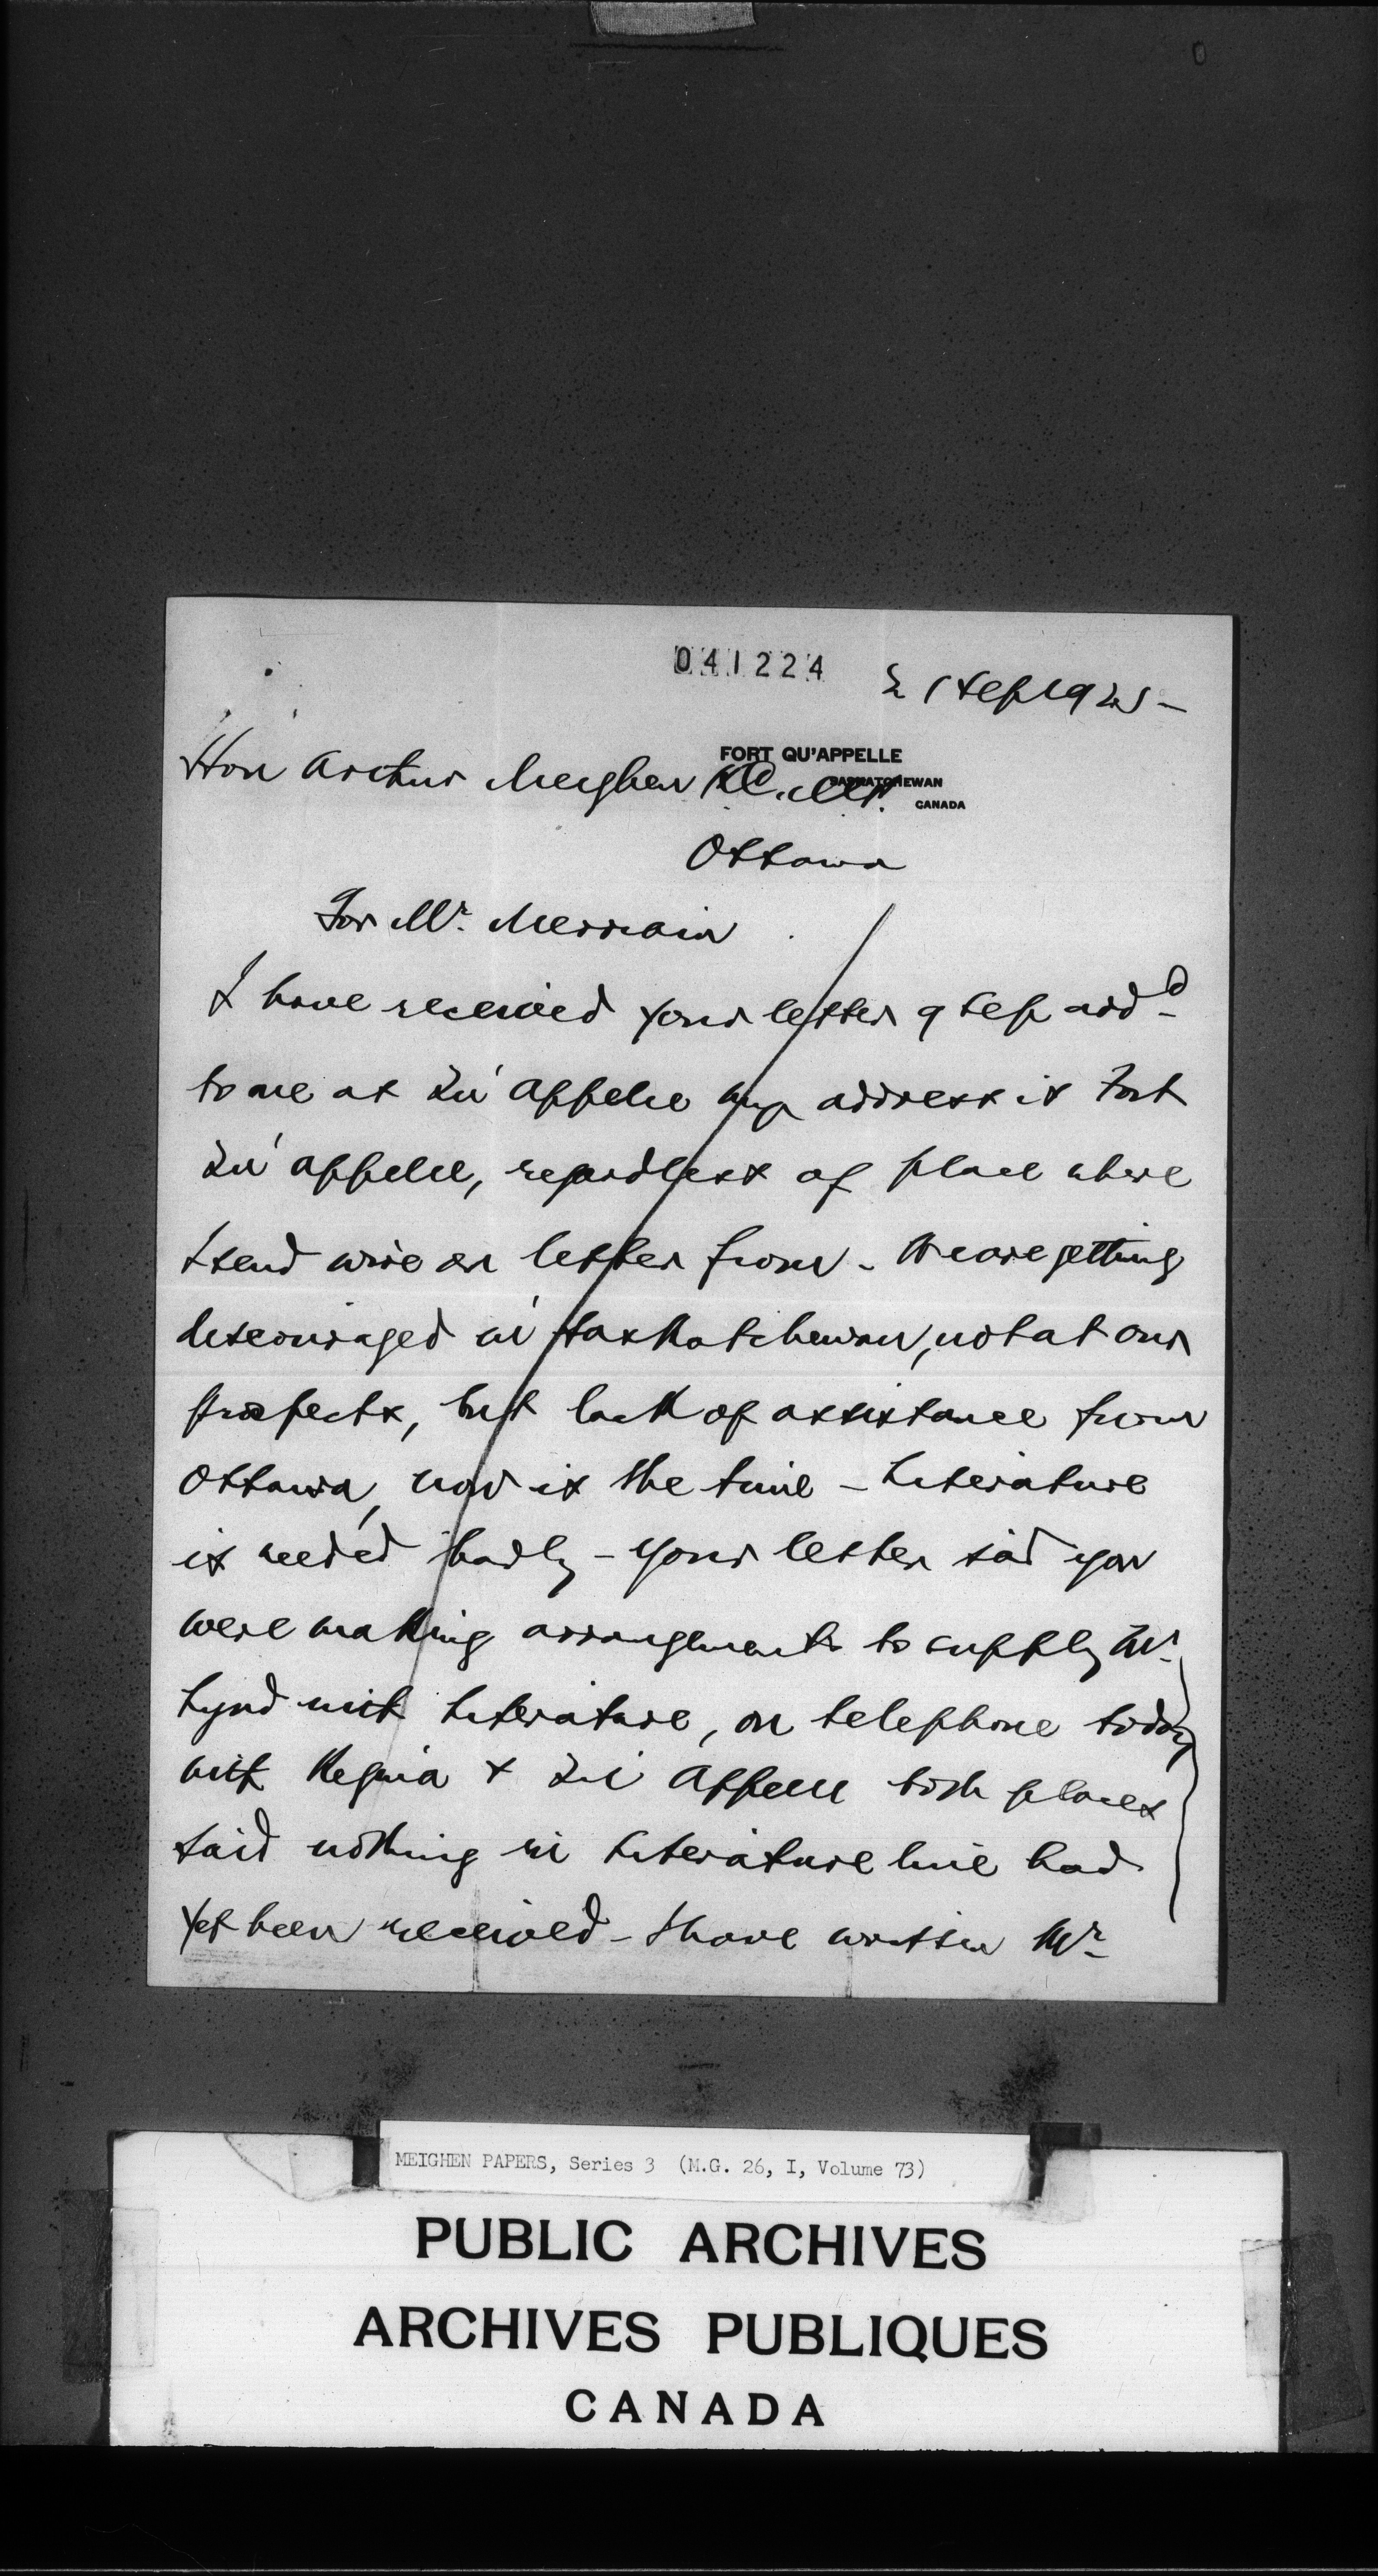 041224
21 Sep 1925 -
FORT QU'APPELLE
SASKATCHEWAN
CANADA
Hon Arthur Meighen K.C. M.P.
Ottawa
For Mr. Merriam
I have received your letter 9 Sep add^d
to me at Qu'Appelle my address is Fort
Qu'Appelle, regardless of place where
I send wire or letter from - We are getting
discouraged in Saskatchewan, not at our
prospects, but lack of assistance from
Ottawa, now is the time - Literature
is needed badly - your letter said you
were making arrangements to supply Mr.
Lynd with Literature, on telephone today
with Regina & Qu'Appelle both places
said nothing in Literature line had
yet been received - I have written Mr.
MEIGHEN PAPERS, Series 3 (M.G. 26, I, Volume 73)
PUBLIC ARCHIVES
ARCHIVES PUBLIQUES
CANADA